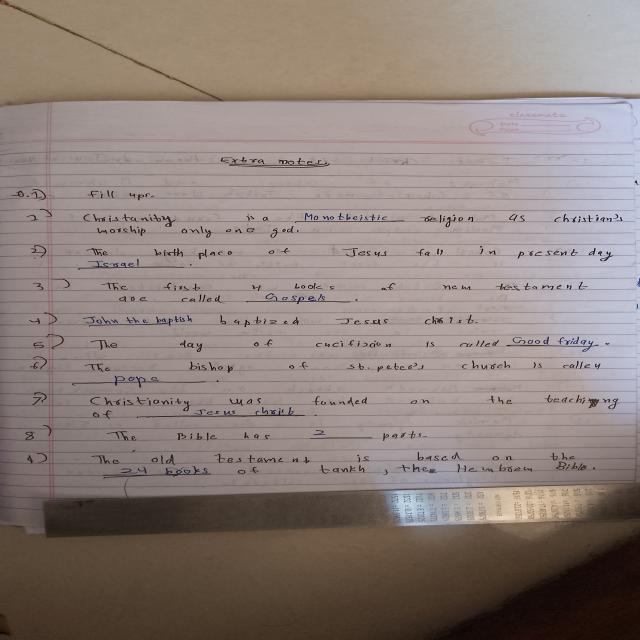 classmate
Extra notes
Q.1) Fill ups.
1) Christanity is a Monotheistic religion as christians
worship only one god.
2) The birth place of Jesus fall in present day
Israel.
3) The first 4 books of new testament
are called Gospels.
4) John the baptish baptized Jesus christ.
5) The day of cucifixion is called Good friday.
6) The bishop of st. peter's church is calley
pope.
7) Christianity was founded on the teaching
of Jesus christ.
8) The Bible has 2 parts.
9) The old testament is based on the
24 books of tankh, the Hembrew Bible.